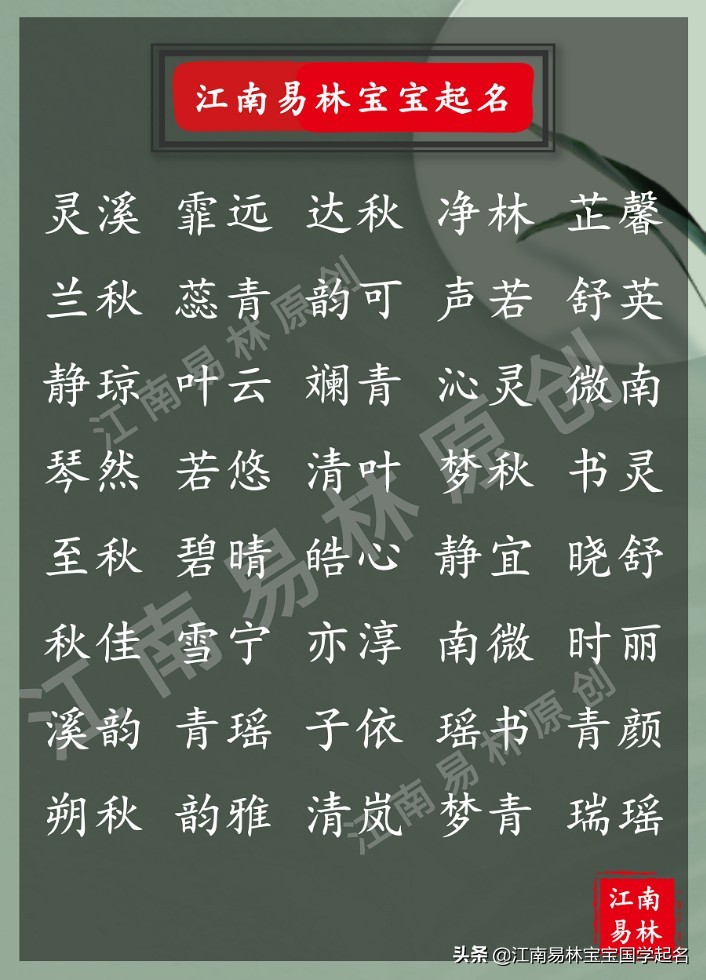 江南易林宝宝起名
灵溪 霏远 达秋 净林 芷馨
兰秋 蕊青 韵可 声若 舒英
静琼 叶云 斓青 沁灵 微南
琴然 若悠 清叶 梦秋 书灵
至秋 碧晴 皓心 静宜 晓舒
秋佳 雪宁 亦淳 南微 时丽
溪韵 青瑶 子依 瑶书 青颜
朔秋 韵雅 清岚 梦青 瑞瑶
江南易林原创
江南易林原创
江南易林原创
江南
易林
头条 @江南易林宝宝国学起名